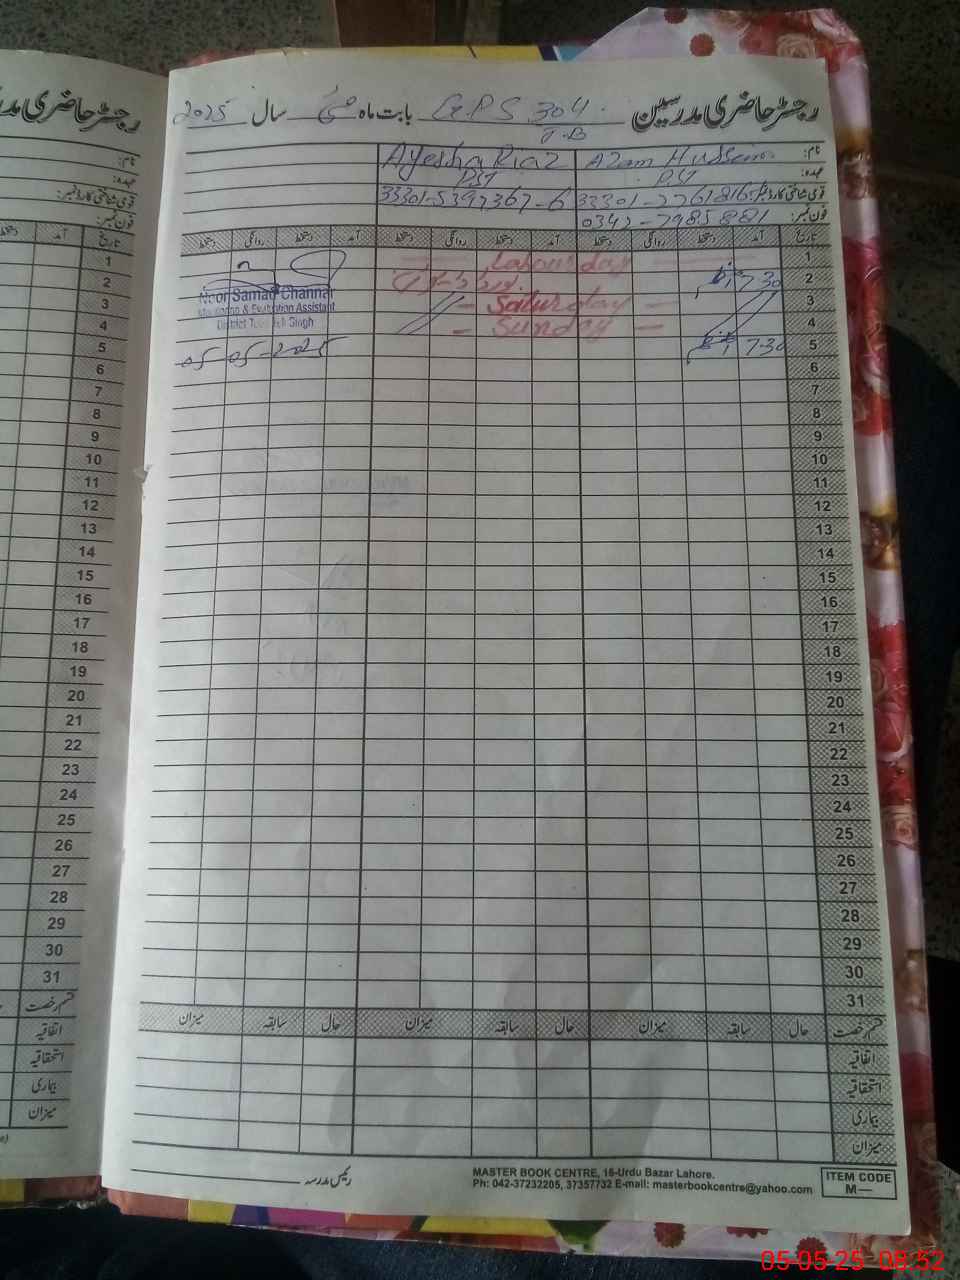 رجسٹر حاضری مدرسین G.P.S 304 J.B بابت ماہ مئی سال 2025
نام: Azam Hussain Ayesha Riaz
عہدہ: PST PST
قومی شناختی کارڈ نمبر: 33301-5397367-6
فون نمبر: 0347-7985881
تاریخ آمد دستخط روانگی دستخط آمد دستخط روانگی دستخط آمد دستخط روانگی دستخط
1 Labour day
2 7-30
3 Saturday
4 Sunday
5 7-30
Noor Samad Channar
Monitoring & Evaluation Assistant
District Toba Tek Singh
05-05-2025
6
7
8
9
10
11
12
13
14
15
16
17
18
19
20
21
22
23
24
25
26
27
28
29
30
31
قسم رخصت حال سابقہ میزان حال سابقہ میزان حال سابقہ میزان
اتفاقیہ
استحقاقیہ
بیماری
میزان
رئیس مدرسہ
MASTER BOOK CENTRE, 16-Urdu Bazar Lahore.
Ph: 042-37232205, 37357732 E-mail: masterbookcentre@yahoo.com
ITEM CODE
M—
رجسٹر حاضری
نام:
عہدہ:
قومی شناختی کارڈ نمبر:
فون نمبر:
تاریخ آمد دستخط
1
2
3
4
5
6
7
8
9
10
11
12
13
14
15
16
17
18
19
20
21
22
23
24
25
26
27
28
29
30
31
قسم رخصت
اتفاقیہ
استحقاقیہ
بیماری
میزان
05-05-25 08:52